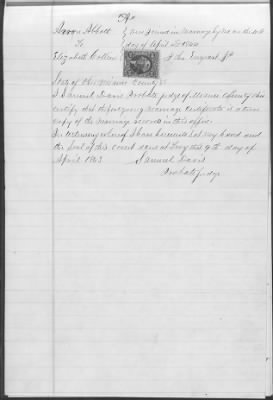 Aaron Abbott } Were joined in marriage by me on the
To } day of April AD 1844
Elizabeth } J. P.
State of Ohio Miami County SS
I Samuel Davis Probate judge of Miami County Ohio
certify that the foregoing marriage certificate is a true
copy of the marriage records in this office.
In testimony whereof I have hereunto set my hand and
the Seal of this court done at Troy this 9th day of
April 1863 Samuel Davis
Probate judge